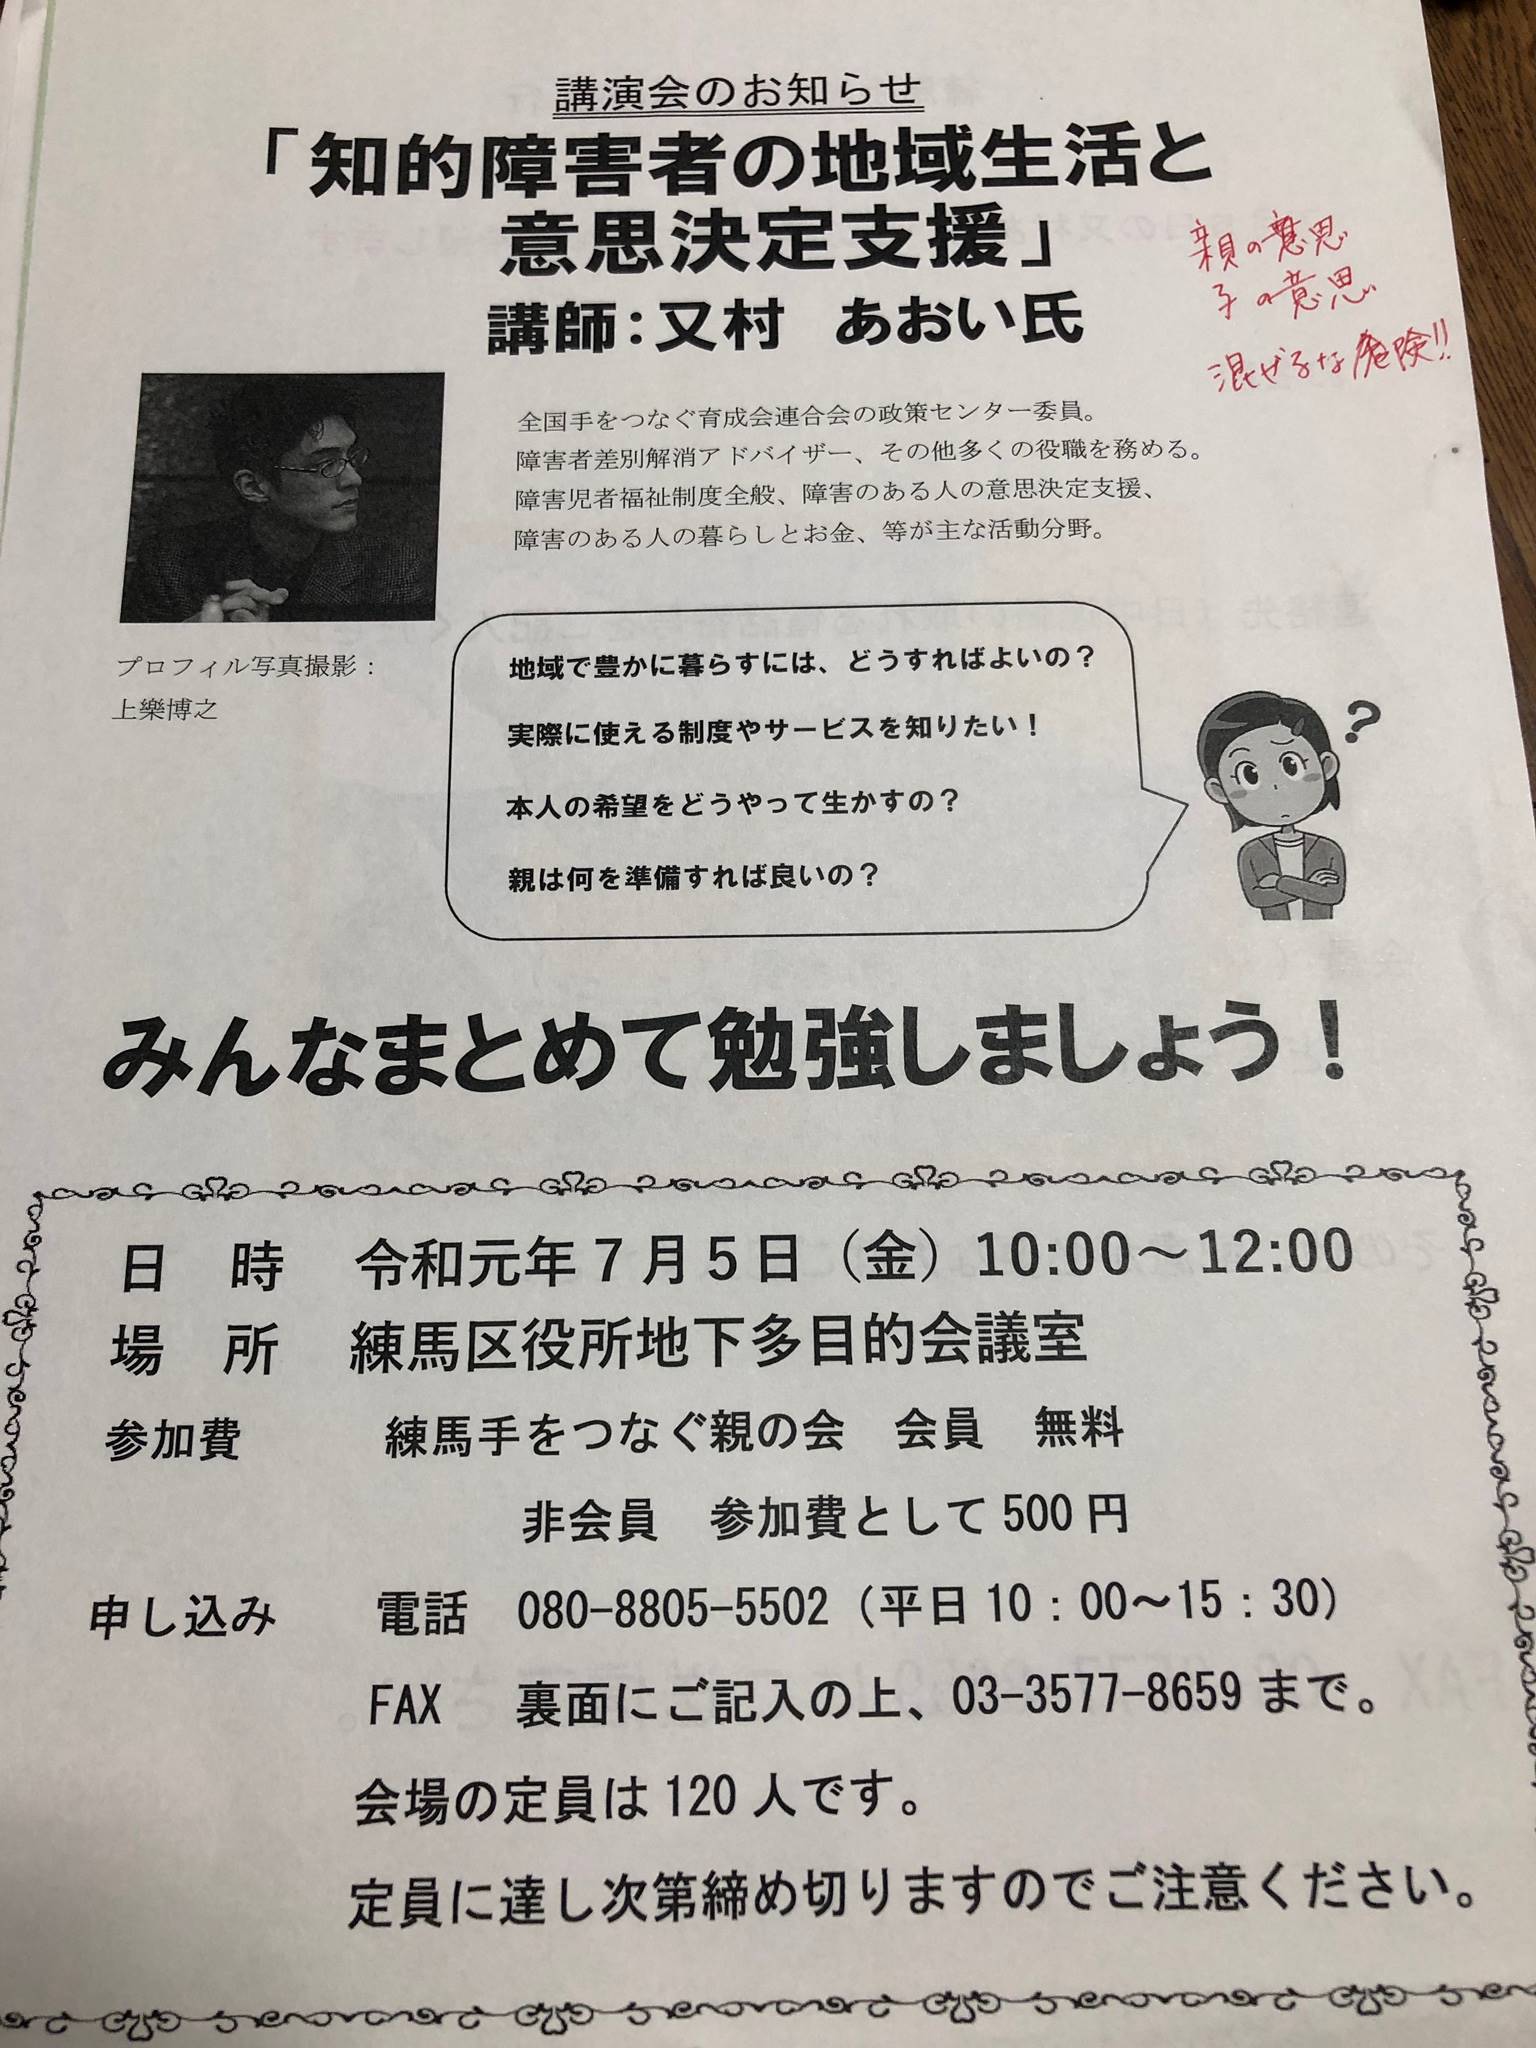 講演会のお知らせ
「知的障害者の地域生活と
意思決定支援」
講師：又村　あおい氏
親の意思
子の意思
混ぜるな危険!!
全国手をつなぐ育成会連合会の政策センター委員。
障害者差別解消アドバイザー、その他多くの役職を務める。
障害児者福祉制度全般、障害のある人の意思決定支援、
障害のある人の暮らしとお金、等が主な活動分野。
プロフィル写真撮影：
上樂博之
地域で豊かに暮らすには、どうすればよいの？
実際に使える制度やサービスを知りたい！
本人の希望をどうやって生かすの？
親は何を準備すれば良いの？
?
みんなまとめて勉強しましょう！
日　時　令和元年７月５日（金）10:00～12:00
場　所　練馬区役所地下多目的会議室
参加費　練馬手をつなぐ親の会　会員　無料
非会員　参加費として500円
申し込み　電話　080-8805-5502（平日10：00～15：30）
FAX　裏面にご記入の上、03-3577-8659まで。
会場の定員は120人です。
定員に達し次第締め切りますのでご注意ください。